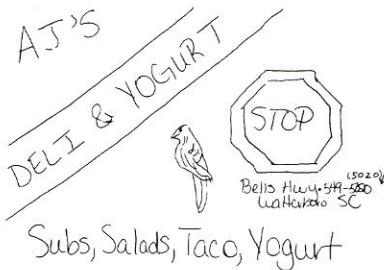 AJ'S
DELI & YOGURT
STOP
Bells Hwy. 549-
(5020)
Walterboro SC
Subs, Salads, Taco, Yogurt